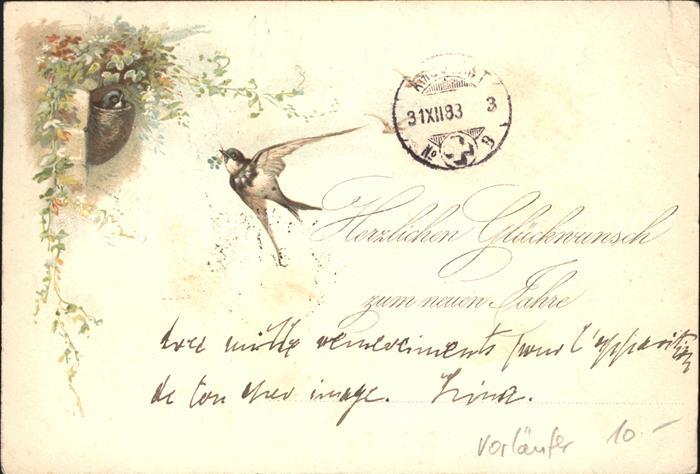 31XII83 3
No 8
Herzlichen Glückwunsch
zum neuen Jahre
avec mille remerciments pour l'apparition
de ton cher image.
Vorläufer 10.-